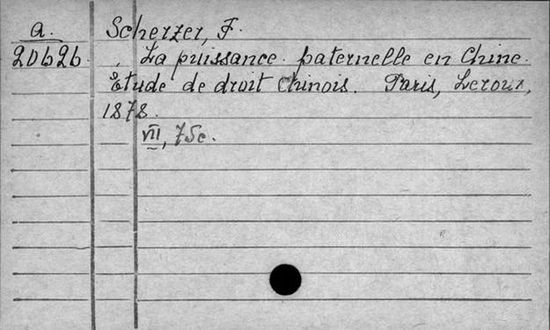 a.
20626
Scherzer, F.
La puissance paternelle en Chine.
Etude de droit Chinois. Paris, Leroux,
1878.
VII, 75c.